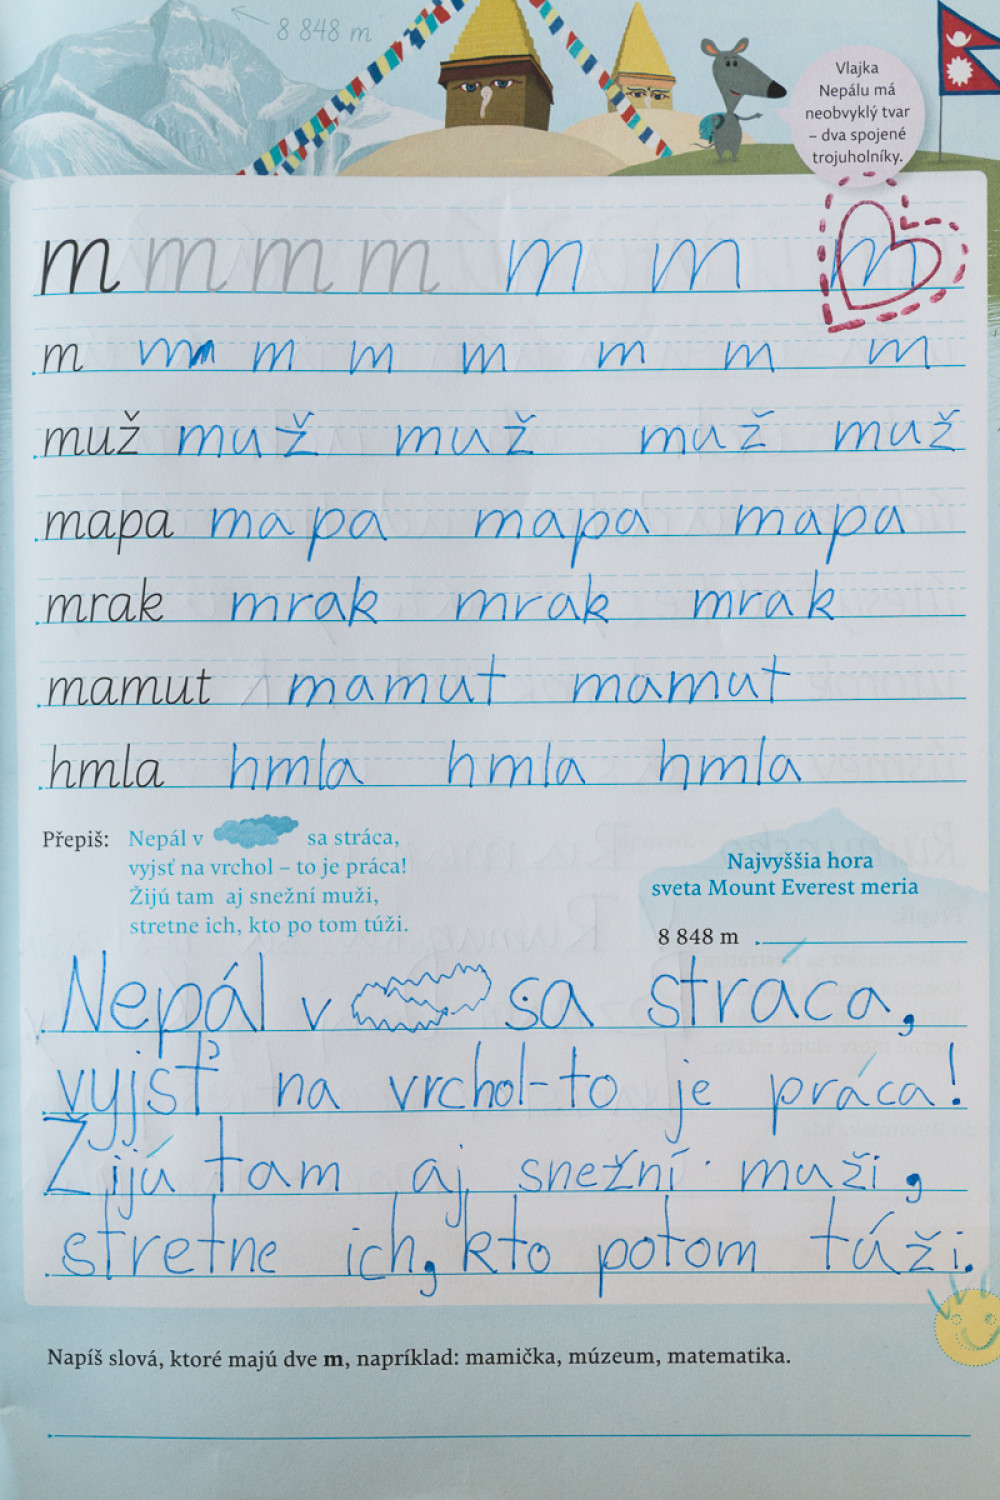 8 848 m
Vlajka
Nepálu má
neobvyklý tvar
– dva spojené
trojuholníky.
m m m m m m m
m m m m m m m m
muž muž muž muž muž
mapa mapa mapa mapa
mrak mrak mrak mrak
mamut mamut mamut
hmla hmla hmla hmla
Přepiš: Nepál v sa stráca,
vyjsť na vrchol – to je práca!
Žijú tam aj snežní muži,
stretne ich, kto po tom túži.
Najvyššia hora
sveta Mount Everest meria
8 848 m
Nepál v sa stráca,
vyjsť na vrchol-to je práca!
Žijú tam aj snežní muži,
stretne ich, kto potom túži.
Napíš slová, ktoré majú dve m, napríklad: mamička, múzeum, matematika.